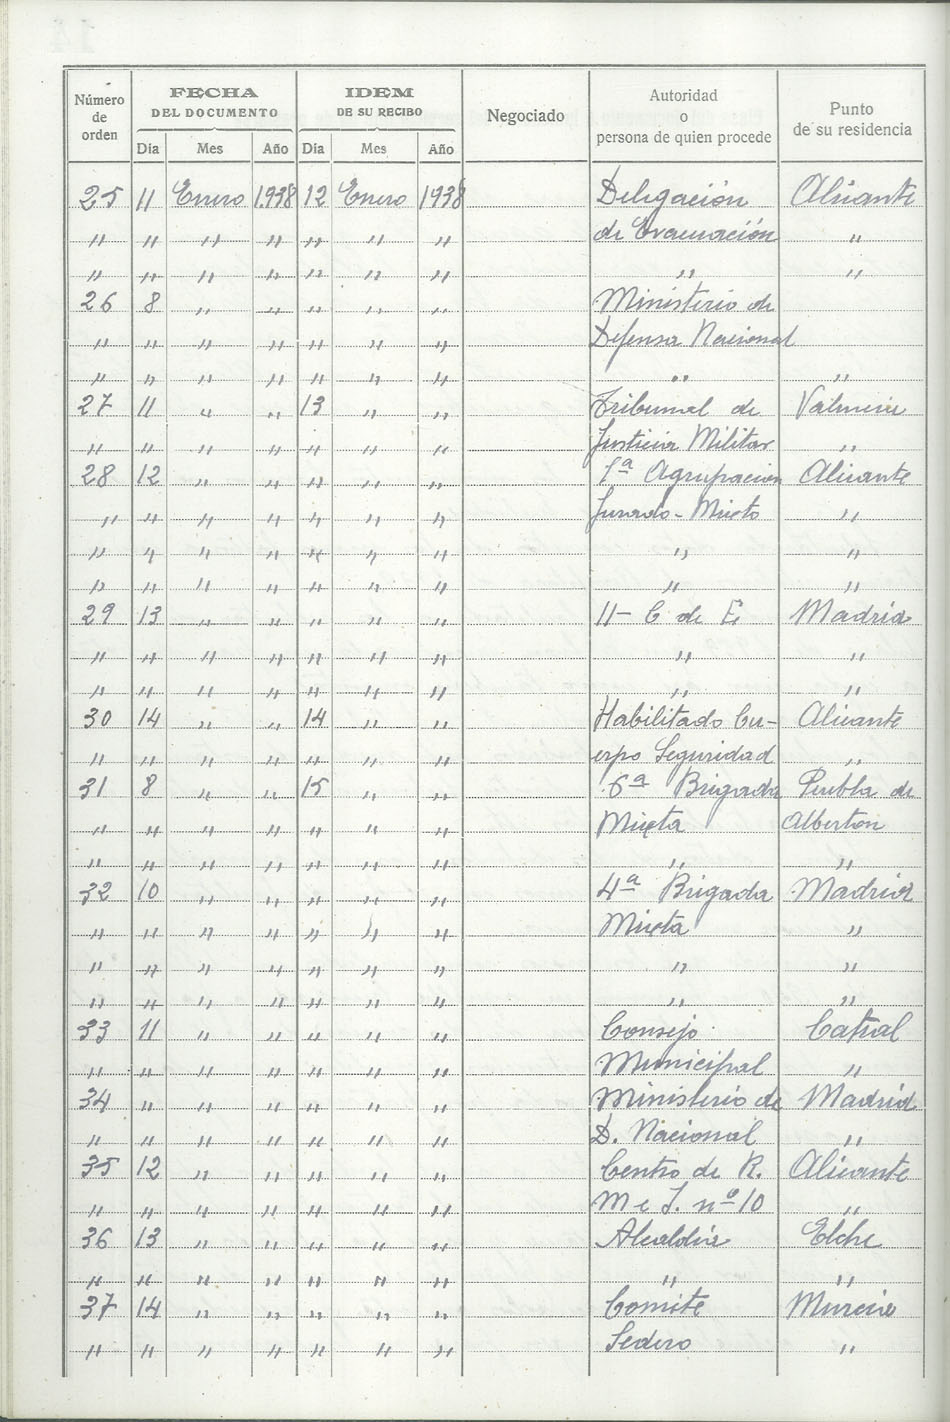 Número de orden | FECHA DEL DOCUMENTO | IDEM DE SU RECIBO | Negociado | Autoridad o persona de quien procede | Punto de su residencia
Día | Mes | Año | Día | Mes | Año
25 11 Enero 1938 12 Enero 1938 Delegación Alicante
" " " " " " " de Evacuación "
" " " " " " " " "
26 8 " " " " " Ministerio de
" " " " " " " Defensa Nacional
" " " " " " " " "
27 11 " " 13 " " Tribunal de
" " " " " " " Justicia Militar "
28 12 " " " " " 1ª Agrupación Alicante
" " " " " " " Jurado-Mixto "
" " " " " " " " "
" " " " " " " " "
29 13 " " " " " 11- C de E Madrid
" " " " " " " " "
" " " " " " " " "
30 14 " " 14 " " Habilitado Cu- Alicante
" " " " " " " erpo Seguridad "
31 8 " " 15 " " 6ª Brigada Puebla de
" " " " " " " Mixta Alberton
" " " " " " " " "
32 10 " " " " " 4ª Brigada Madrid
" " " " " " " Mixta "
" " " " " " " " "
" " " " " " " " "
33 11 " " " " " Consejo Catral
" " " " " " " Municipal "
34 " " " " " " Ministerio de Madrid
" " " " " " " D. Nacional "
35 12 " " " " " Centro de R. Alicante
" " " " " " " M e I. nº 10 "
36 13 " " " " " Alcaldía Elche
" " " " " " " " "
37 14 " " " " " Comite Murcia
" " " " " " " Sedero "